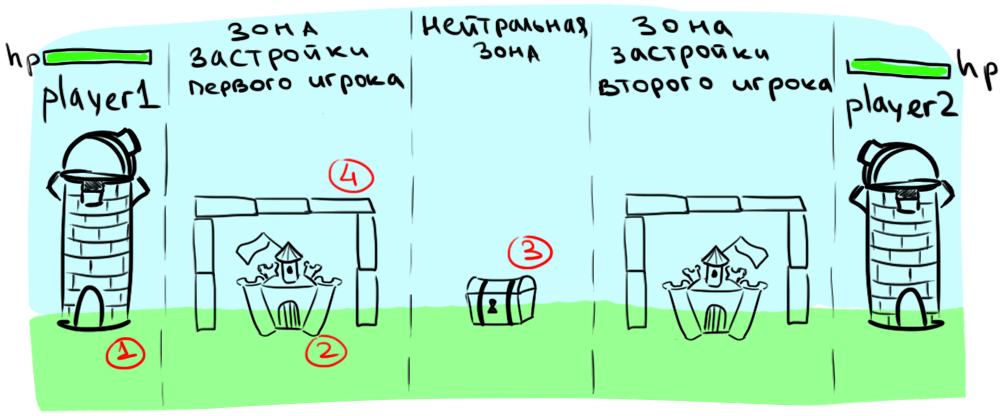 hp
player1
ЗОНА
ЗАСТРОЙКИ
ПЕРВОГО ИГРОКА
НЕЙТРАЛЬНАЯ
ЗОНА
ЗОНА
ЗАСТРОЙКИ
ВТОРОГО ИГРОКА
hp
player2
4
3
1
2